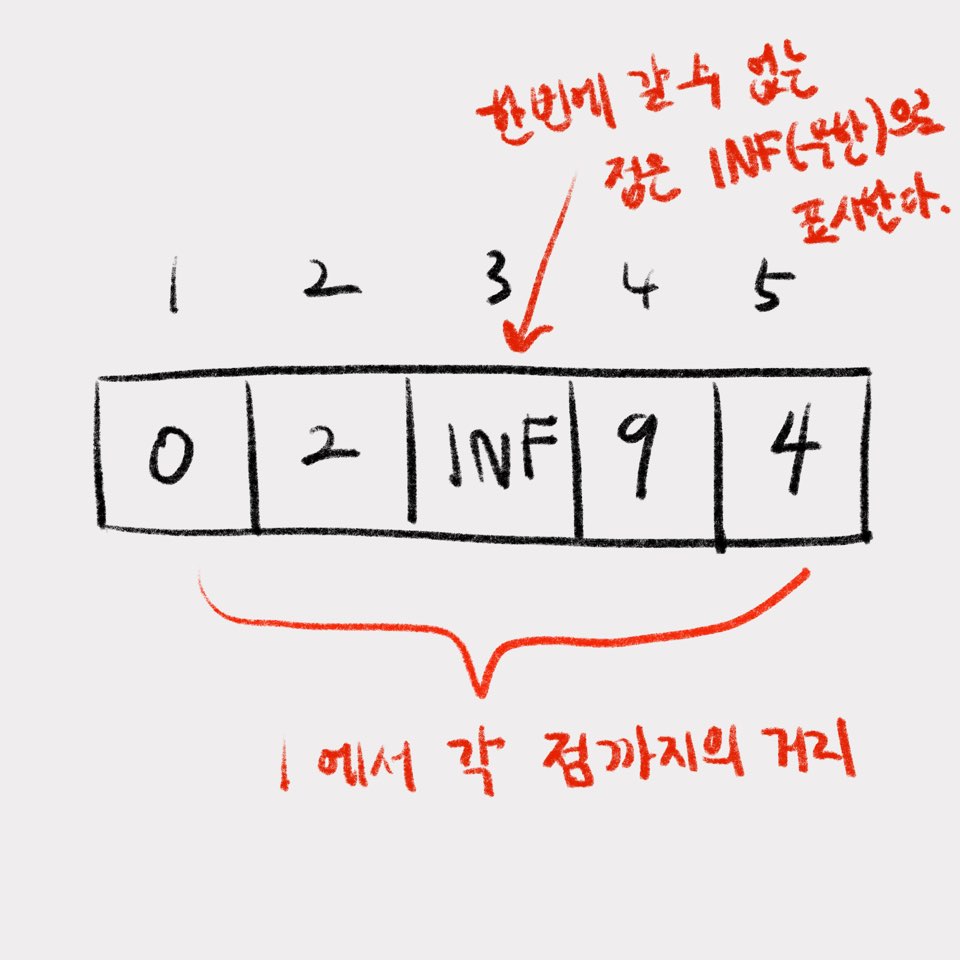 한번에 갈 수 없는
점은 INF(무한)으로
표시한다.
1 2 3 4 5
0 2 INF 9 4
1에서 각 점까지의 거리